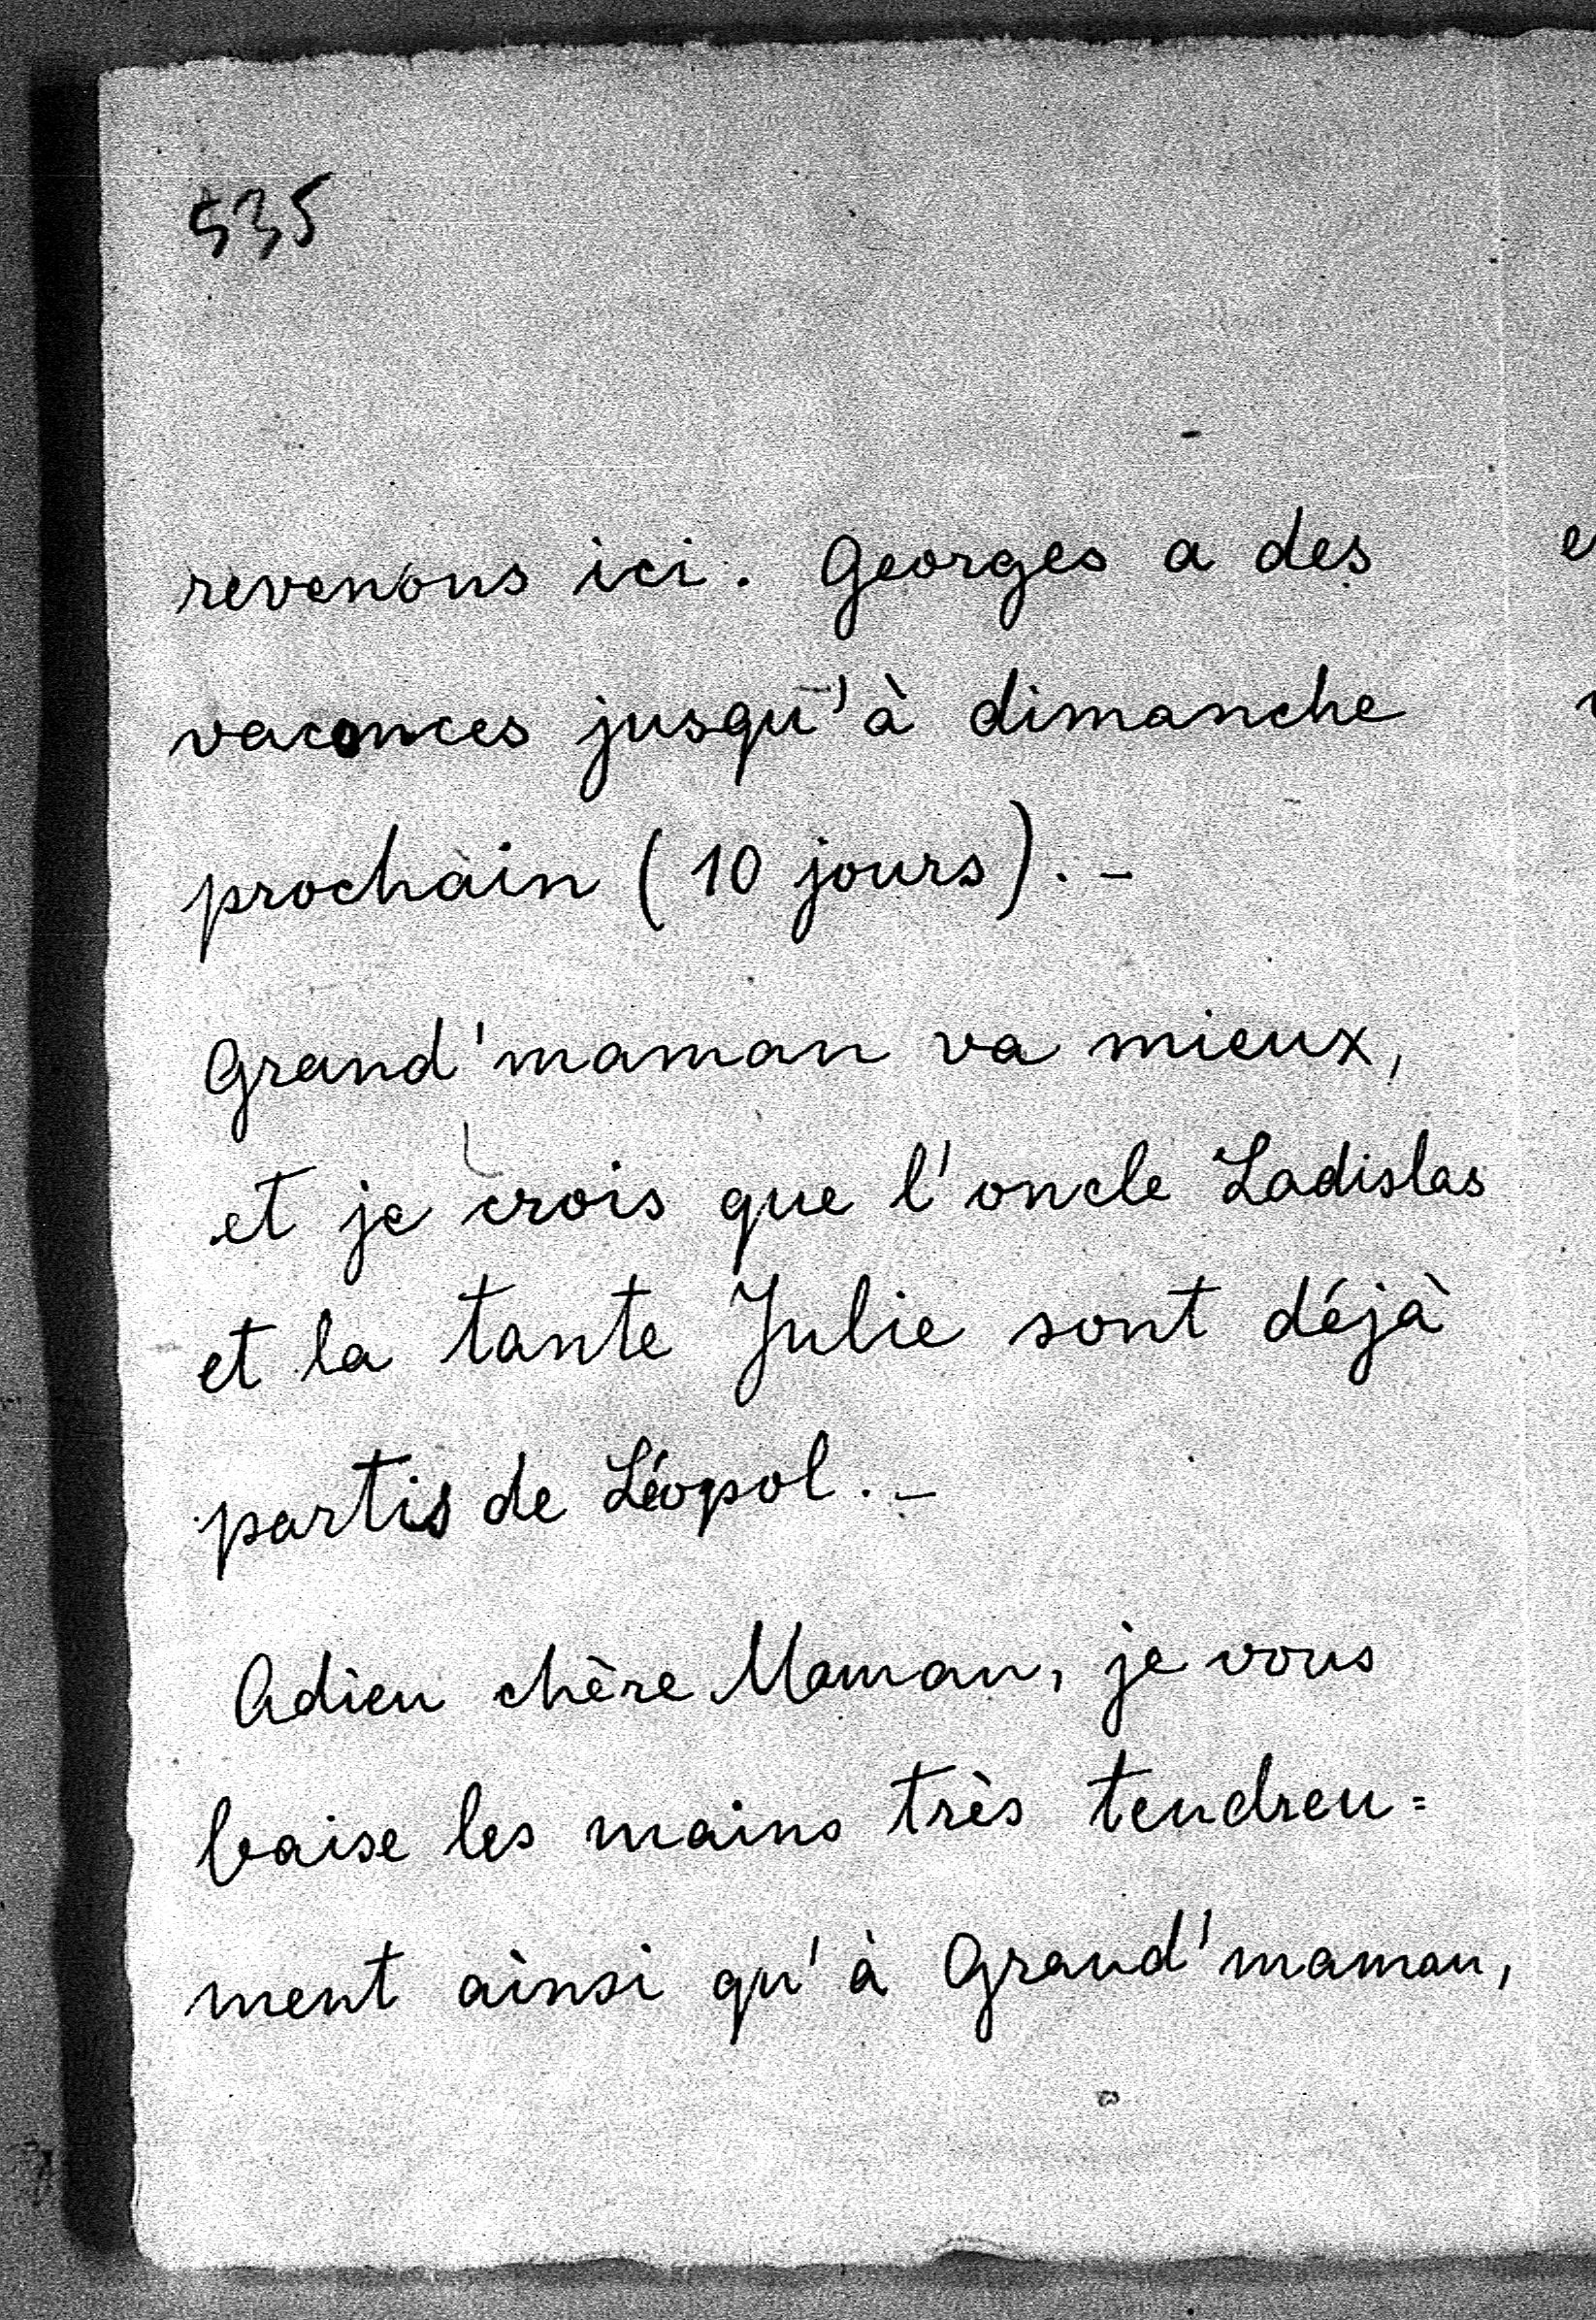 535
revenons ici. Georges a des
vacances jusqu'à dimanche
prochain (10 jours). -
Grand'maman va mieux,
et je crois que l'oncle Ladislas
et la tante Julie sont déjà
partis de Léopol. -
Adieu chère Maman, je vous
baise les mains très tendreu=
ment ainsi qu'à Grand'maman,